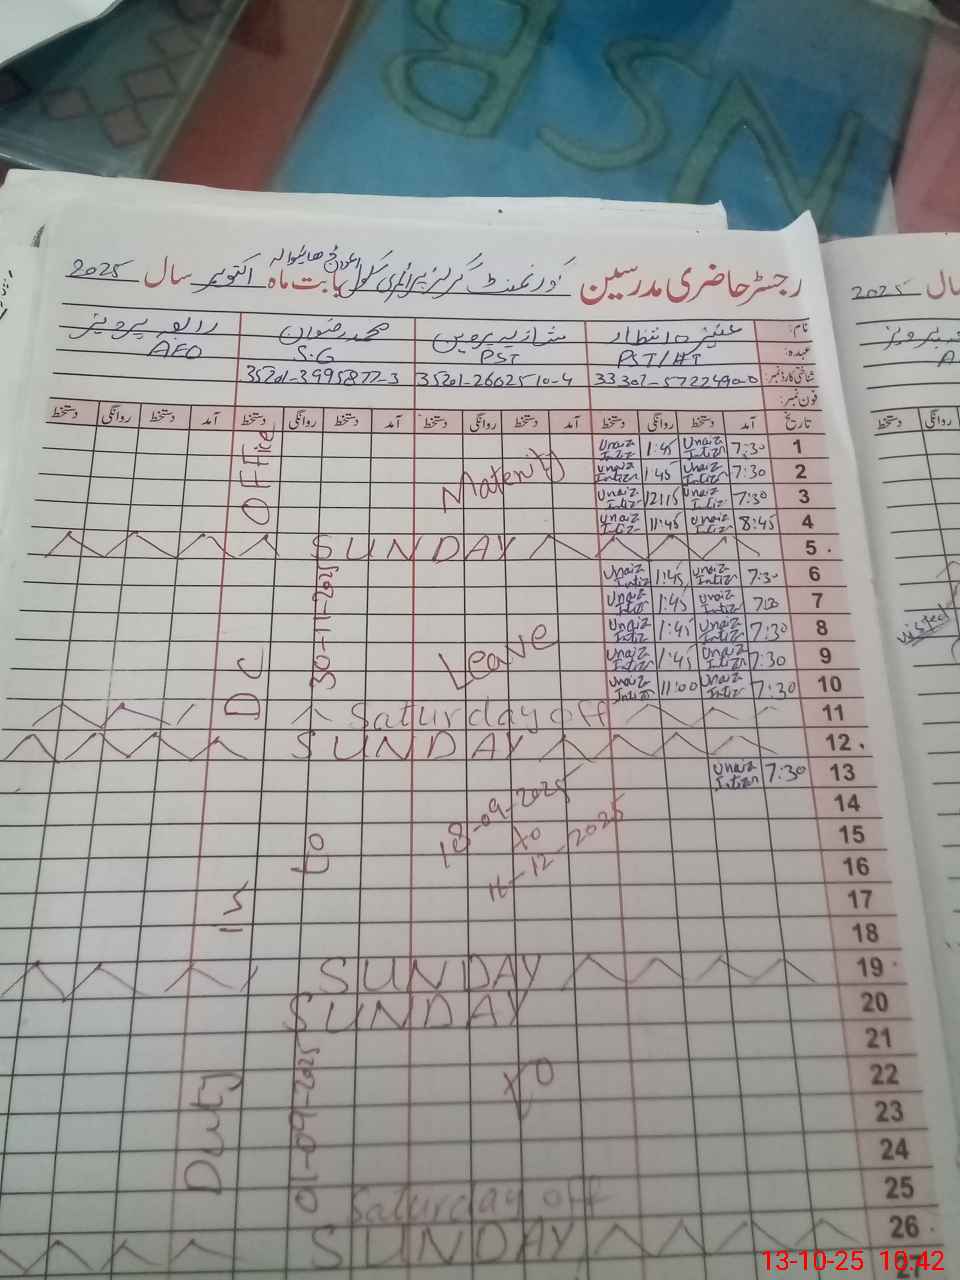 رجسٹر حاضری مدرسین گورنمنٹ گرلز پرائمری سکول بابت ماہ اکتوبر سال 2025
نام: عنیزہ انتظار شازیہ پروین محمد رضوان رابعہ پرویز
عہدہ: PST/HT PST S.G AEO
شناختی کارڈ نمبر: 35201-2602510-4 35201-3995877-3
فون نمبر:
تاریخ آمد دستخط روانگی دستخط آمد دستخط روانگی دستخط آمد دستخط روانگی دستخط آمد دستخط روانگی دستخط
1 7:30 Unaiz Intizr 1:45 Unaiz Intizr
2 7:30 Unaiz Intizr 1:45 Unaiz Intizr
3 7:30 Unaiz Intizr 12:15 Unaiz Intizr
4 8:45 Unaiz Intizr 11:45 Unaiz Intizr
5 SUNDAY
6 7:30 Unaiz Intizr 1:45 Unaiz Intizr
7 7:30 Unaiz Intizr 1:45 Unaiz Intizr
8 7:30 Unaiz Intizr 1:45 Unaiz Intizr
9 7:30 Unaiz Intizr 1:45 Unaiz Intizr
10 7:30 Unaiz Intizr 11:00 Unaiz Intizr
11 Saturday off
12 SUNDAY
13 7:30 Unaiz Intizr
14
15
16
17
18
19 SUNDAY
20 SUNDAY
21
22
23
24
25 Saturday off
26 SUNDAY
27
Maternity
Leave
18-09-2025
to
16-12-2025
01-09-2025 to 30-11-2025
Duty in DC Office
2025 سال
visited
NSB
13-10-25 10:42